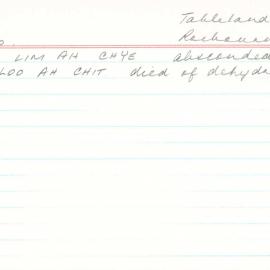 Tableland
LIM AH CHYE absconded
LOO AH CHIT died of dehyd